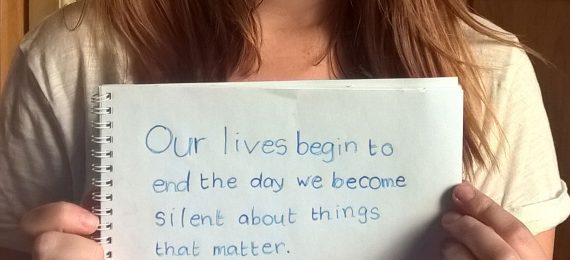 Our lives begin to
end the day we become
silent about things
that matter.